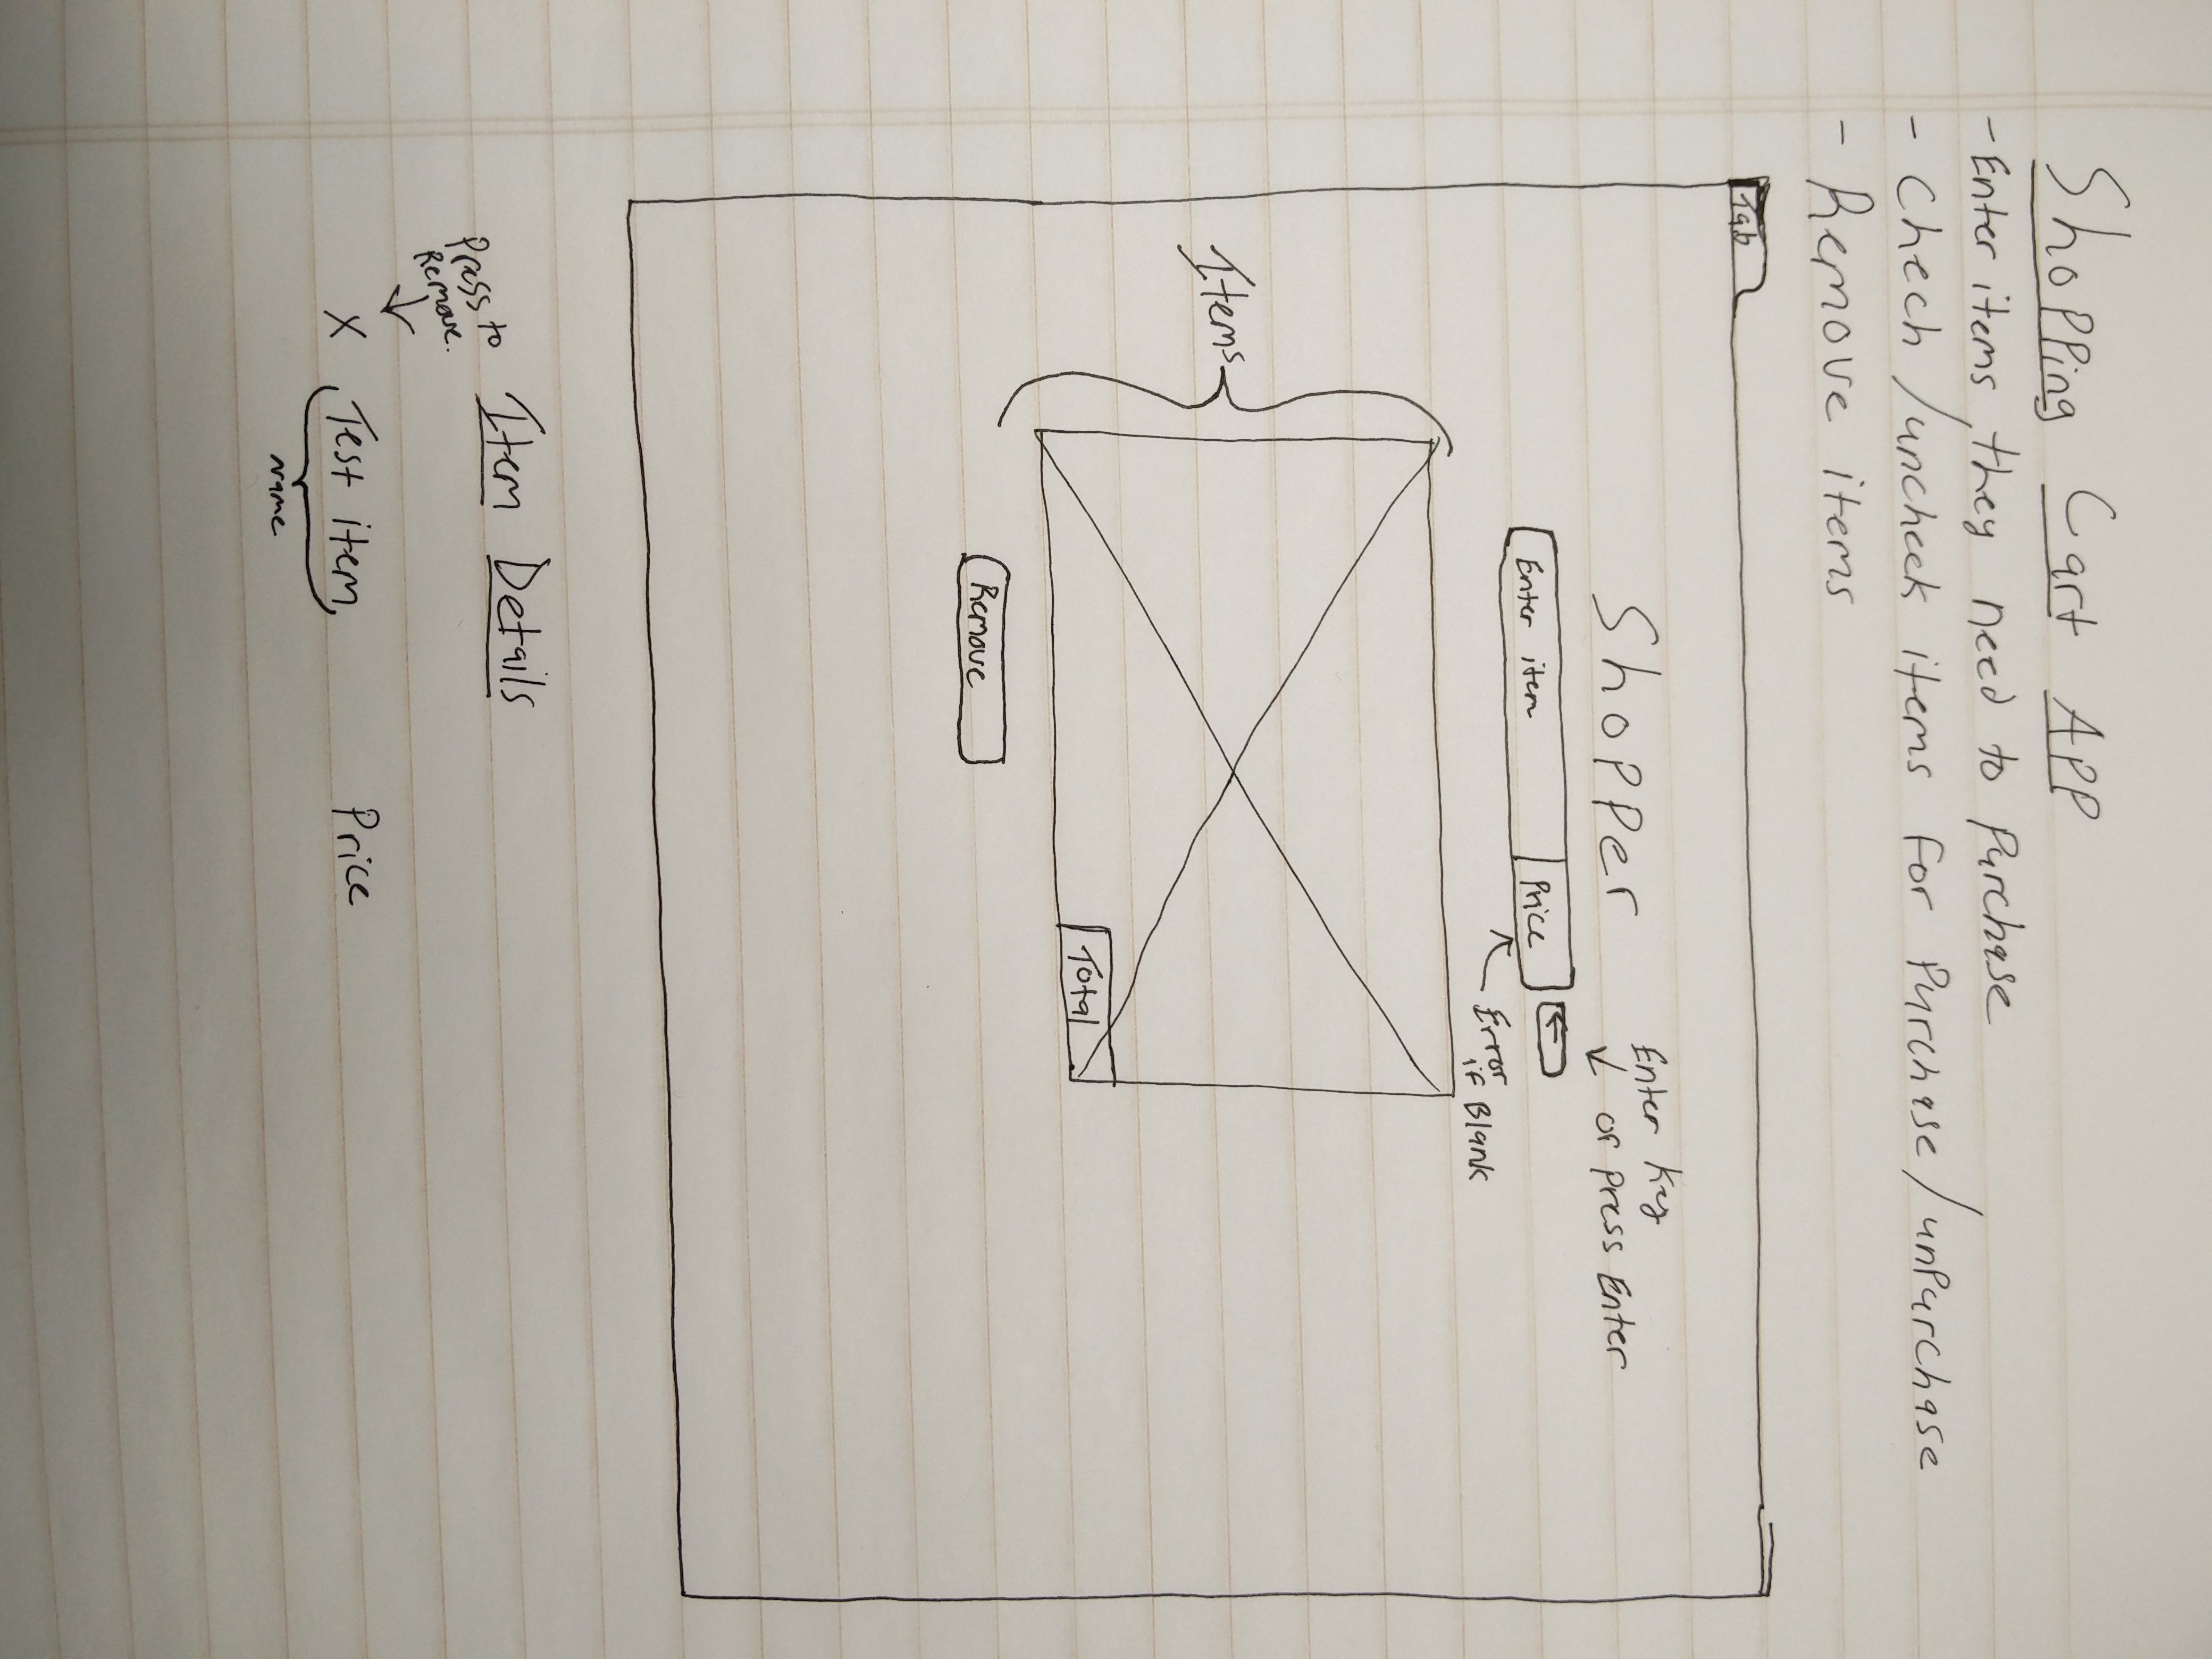 Shopping Cart App
- Enter items they need to purchase
- Chech / uncheck items for purchase / unpurchase
- Remove items
Tab
Shopper
Enter Key
or press Enter
Enter item Price
Error
if Blank
Items
Total
Remove
Item Details
Press to
Remove.
X Test item Price
name